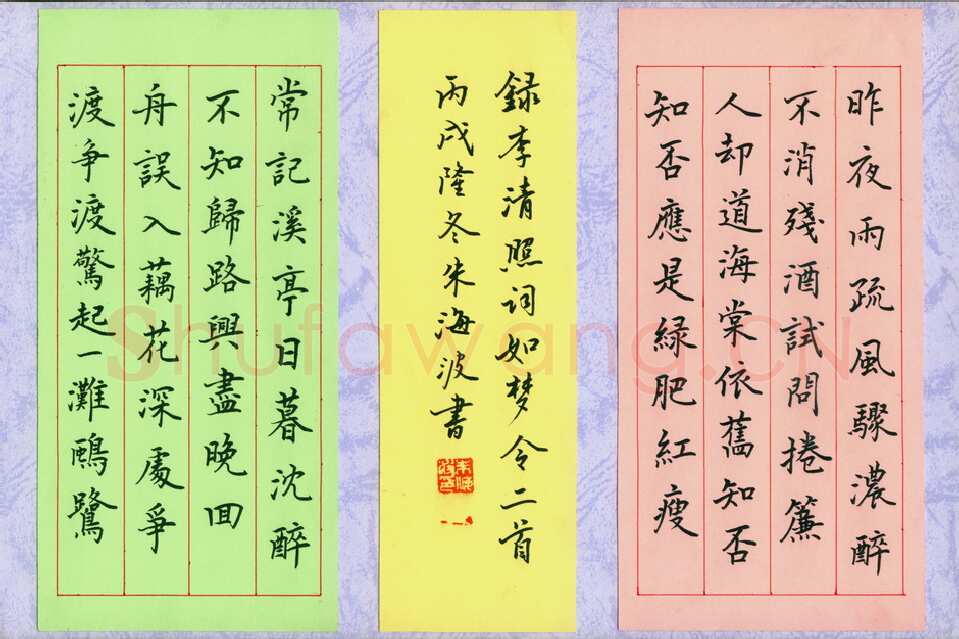 昨夜雨疏風驟濃醉
不消殘酒試問捲簾
人却道海棠依舊知否
知否應是緑肥紅瘦
録李清照詞如梦令二首
丙戌隆冬朱海波書
常記溪亭日暮沈醉
不知歸路興盡晚回
舟誤入藕花深處爭
渡争渡驚起一灘鷗鷺
Shufawang.CN